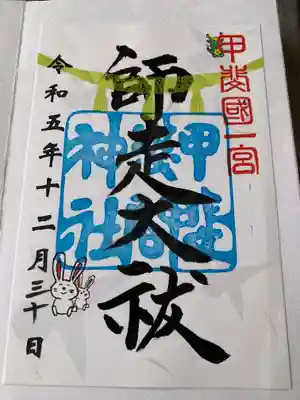 甲斐國一宮
師走大祓
神社
令和五年十二月三十日